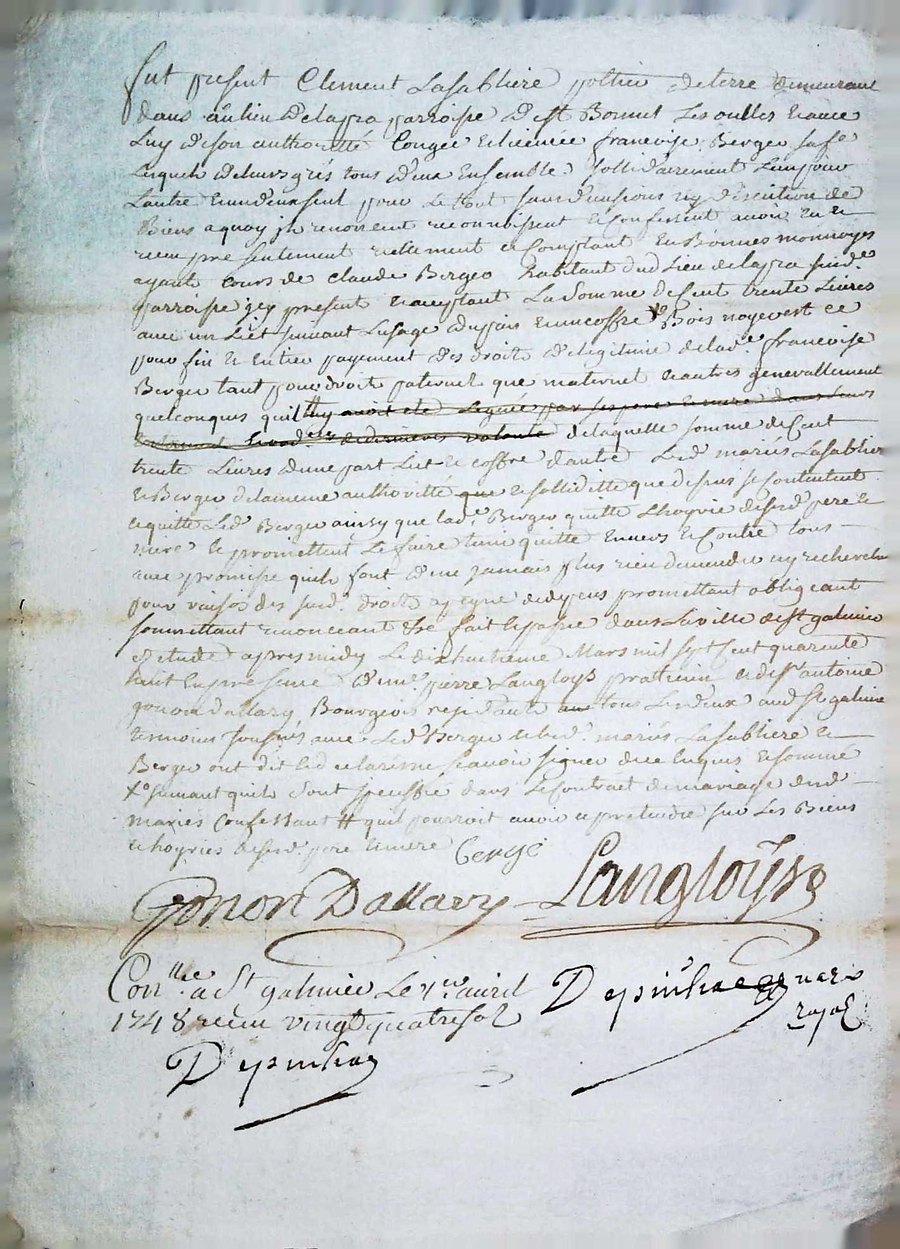 fut present Clement Lasabliere pottier de terre demeurant
dans au lieu delapra parroisse de st Bonnet Les oulles Lequel
Luy deson authorité Congée et licentiée francoise Berger sa fe
Lesquels deleurs grés tous deux Ensemble sollidairement Lun pour
Lautre Lun deux seul pour Le tout sans divisions ny discution de
Biens aquoy ils renoncent reconnoissent et Confessent avoir eu et
receu presentement reellement et Comptant En Bonnes monnoyes
ayant cours de claude Berger habitant dud Lieu delapra susde
parroisse jcy present et acceptant La Somme de Cent trente Livres
avec un Lict suivant Lusage du pais et un coffre Bois noyer et ce
pour fin et Entier payement des droits de legitime delade francoise
Berger tant pour droit paternel que maternel et autres generallement
quelconques quil luy avoit eté Leguée par ses pere et mere dans Leurs
dernieres volonté delaquelle somme de Cent
trente Livres dune part Lict et coffre dautre Lesd mariés Lasabliere
et Berger delameme authoritté que et sollidité que dessus se Contentent
et quitte Led Berger ainsy que lade Berger quitte Lhoyrie desesd pere et
mere et promettent Le faire tenir quitte Envers et Contre tous
avec promesse quils font de ne jamais plus rien demender ny rechercher
pour raison des susd droits ay eyne dedepens promettant obligeant
soumettant renonceant &c fait et passé dans La ville de st galmier
et etude apres midy Le dixhuitieme Mars mil sept Cent quarente
huit En presence de me pierre Langloys praticien et de sr antoine
gonon dallary Bourgeois residants tous Les deux aud st galmier
temoins soussnés avec Led Berger et lesd mariés Lasabliere et
Berger ont dit et declaré ne scavoir signer de ce Enquis et sommé
Xo suivant quils sont speciffié dans Le Contract de mariage desd
mariés Confessant # quil pourroit avoir a pretendre sur Les Biens
et hoyries de sesd pere et mere Berge
Gonon Dallary Langloys
Conlle a St galmier Le 1er avril Depinhac
1748 receu vingt quatre sol
Depinhac